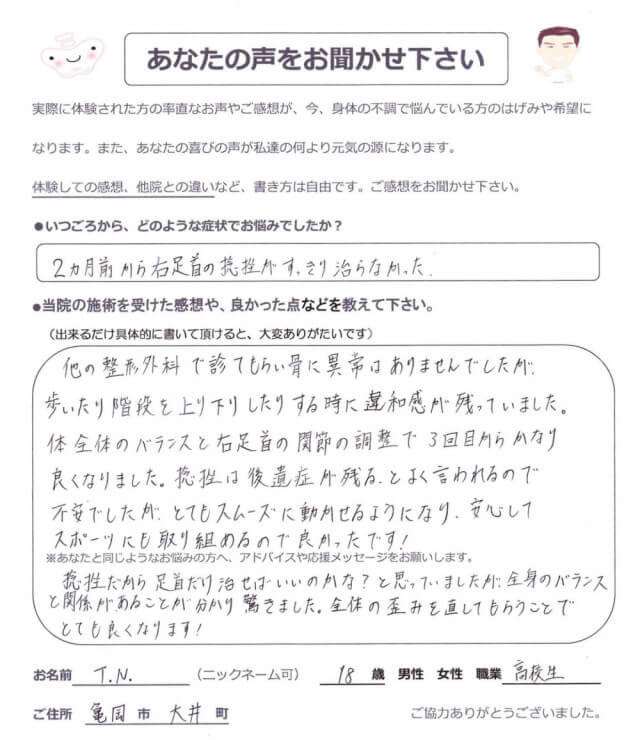 あなたの声をお聞かせ下さい
実際に体験された方の率直なお声やご感想が、今、身体の不調で悩んでいる方のはげみや希望に
なります。また、あなたの喜びの声が私達の何より元気の源になります。
体験しての感想、他院との違いなど、書き方は自由です。ご感想をお聞かせ下さい。
●いつごろから、どのような症状でお悩みでしたか？
2カ月前から右足首の捻挫がすっきり治らなかった.
●当院の施術を受けた感想や、良かった点などを教えて下さい。
（出来るだけ具体的に書いて頂けると、大変ありがたいです）
他の整形外科で診てもらい骨に異常はありませんでしたが、
歩いたり階段を上り下りしたりする時に違和感が残っていました。
体全体のバランスと右足首の関節の調整で3回目からかなり
良くなりました。捻挫は後遺症が残る、とよく言われるので
不安でしたが、とてもスムーズに動かせるようになり、安心して
スポーツにも取り組めるので良かったです！
※あなたと同じようなお悩みの方へ、アドバイスや応援メッセージをお願いします。
捻挫だから足首だけ治せばいいのかな？と思っていましたが、全身のバランス
と関係があることが分かり驚きました。全体の歪みを直してもらうことで
とても良くなります！
お名前 T.N. （ニックネーム可） 18 歳 男性 女性 職業 高校生
ご住所 亀岡 市 大井 町 ご協力ありがとうございました。